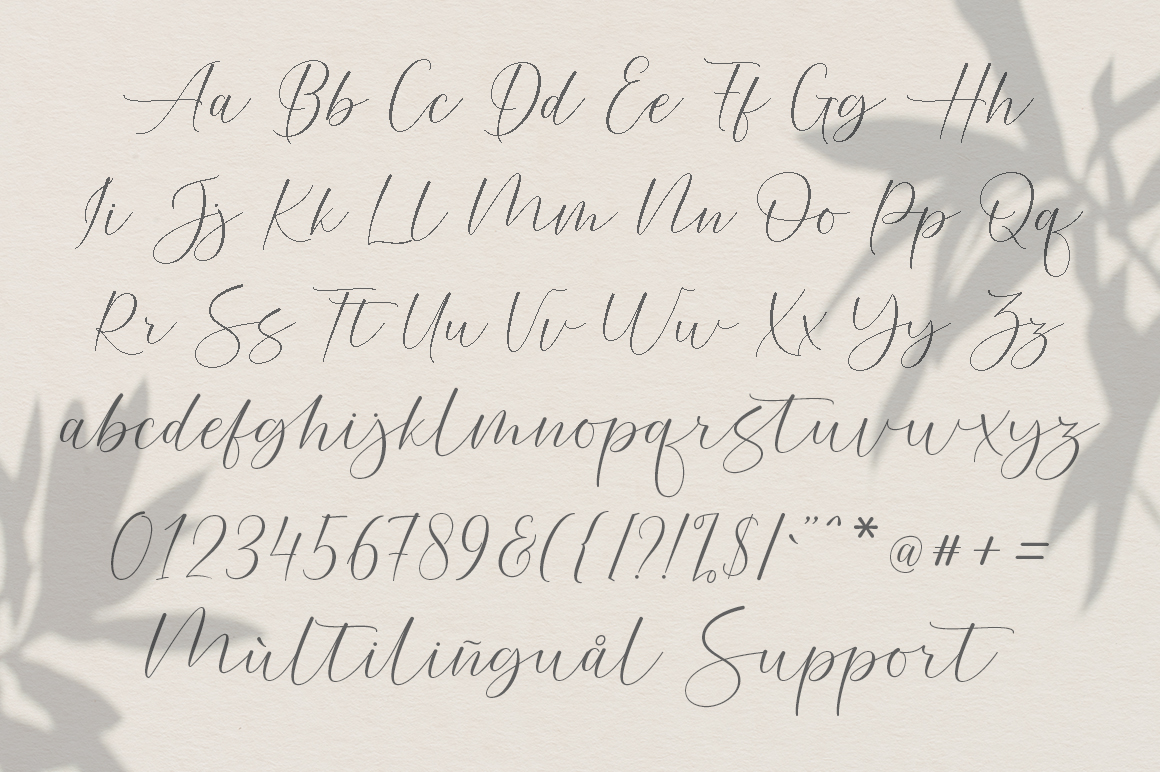 Aa Bb Cc Dd Ee Ff Gg Hh
Ii Jj Kk Ll Mm Nn Oo Pp Qq
Rr Ss Tt Uu Vv Ww Xx Yy Zz
abcdefghijklmnopqrstuvwxyz
0123456789&({[?!%$/`"^*@#+=
Mùltiliñguål Support